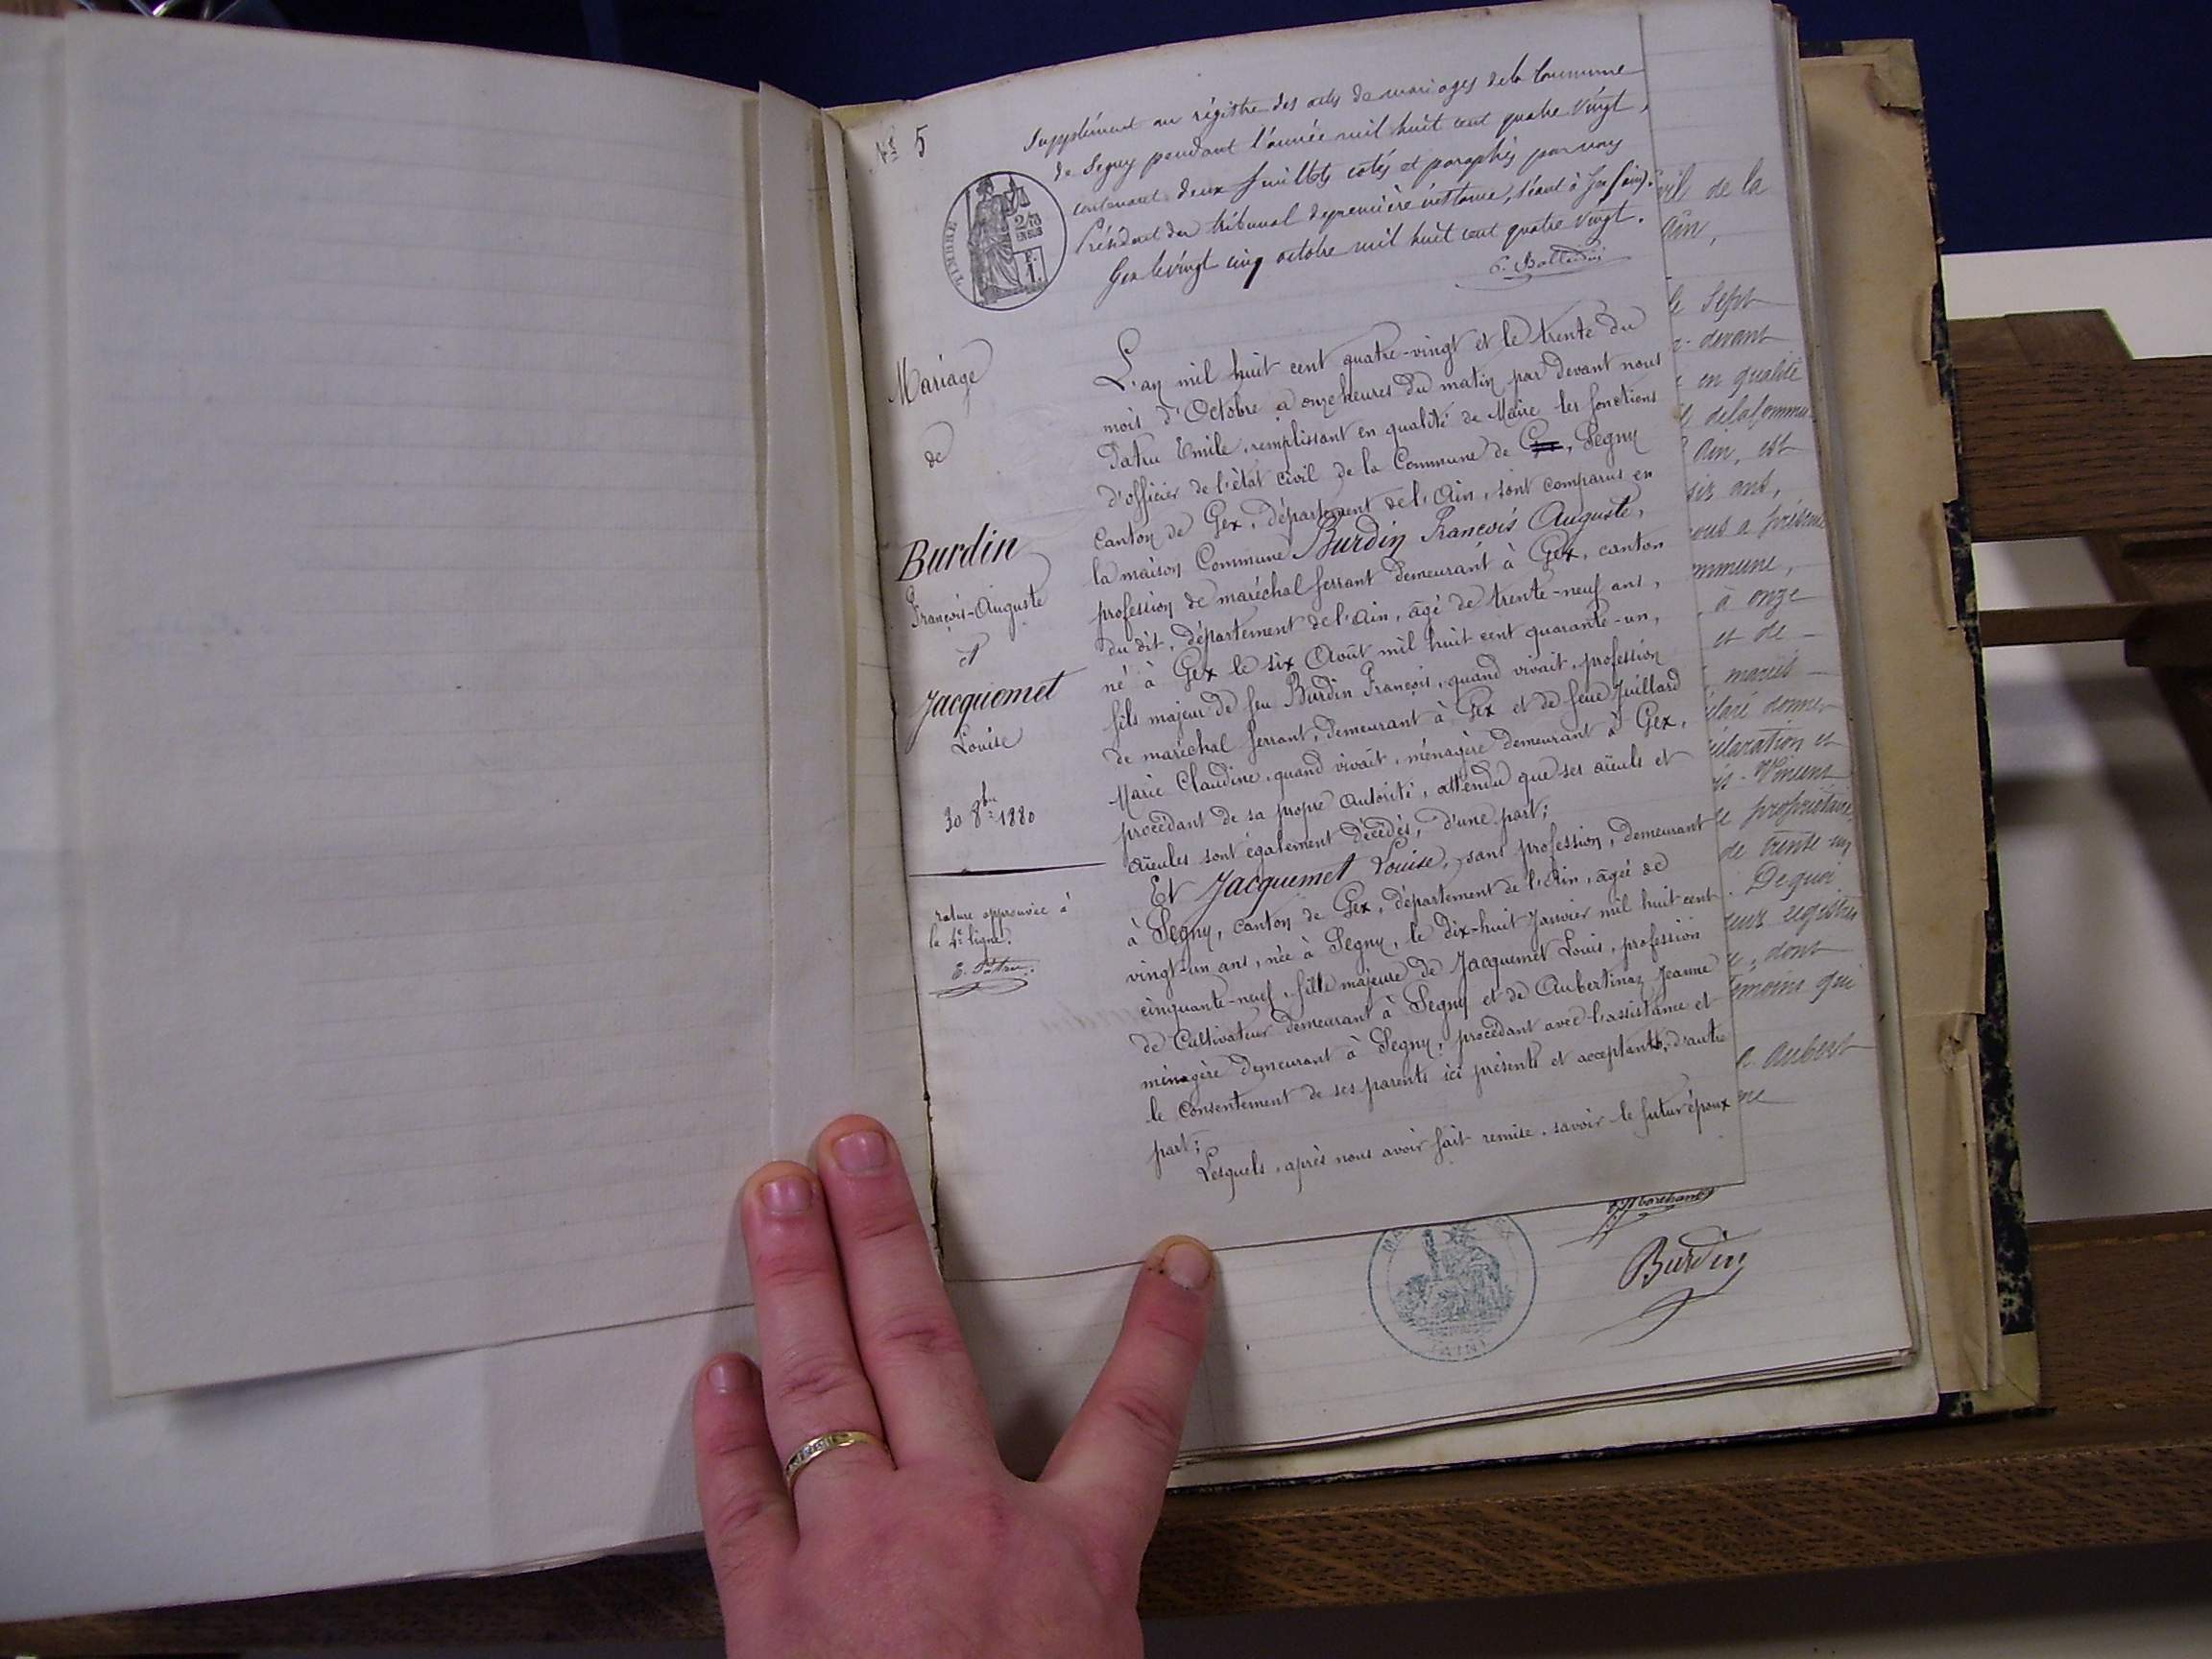 Nº 5
Supplément au régistre des actes de mariages de la Commune
de Segny pendant l'année mil huit cent quatre vingt,
contenant deux feuillets cotés et paraphés par nous
Président du tribunal de première instance, séant à Gex (Ain).
Gex le vingt cinq octobre mil huit cent quatre vingt.
TIMBRE
2/10
EN SUS
F.
1.
Mariage
de
Burdin
François-Auguste
et
Jacquemet
Louise
30 8bre 1880
rature approuvée à
la 4e ligne.
E. Patru
L'an mil huit cent quatre-vingt et le trente du
mois d'Octobre à onze heures du matin par devant nous
Patru Emile, remplissant en qualité de Maire les fonctions
d'officier de l'état civil de la Commune de Gex, Segny
Canton de Gex, département de l'Ain, sont comparus en
la maison Commune Burdin François Auguste,
profession de maréchal ferrant demeurant à Gex, canton
du dit, département de l'Ain, âgé de trente-neuf ans,
né à Gex le six Août mil huit cent quarante-un,
fils majeur de feu Burdin François, quand vivait, profession
de maréchal ferrant, demeurant à Gex et de feue Juillard
Marie Claudine, quand vivait, ménagère demeurant à Gex,
procédant de sa propre autorité, attendu que ses aïeuls et
aïeules sont également décédés, d'une part;
Et Jacquemet Louise, sans profession, demeurant
à Segny, canton de Gex, département de l'Ain, âgée de
vingt-un ans, née à Segny, le dix-huit Janvier mil huit cent
cinquante-neuf, fille majeure de Jacquemet Louis, profession
de Cultivateur demeurant à Segny et de Aubertinaz Jeanne
ménagère demeurant à Segny, procédant avec l'assistance et
le consentement de ses parents ici présents et acceptants, d'autre
part;
Lesquels, après nous avoir fait remise, savoir le futur époux
de la
Ain,
le Sept
devant
en qualité
de la Commu
Ain, est
six ans,
ous a présenté
mmune,
à onze
et de
mariés
claré donner
claration et
Vincent
propriétaire,
de trente-un
De quoi
registre
dont
témoins qui
Aubert
Burdin
AIN